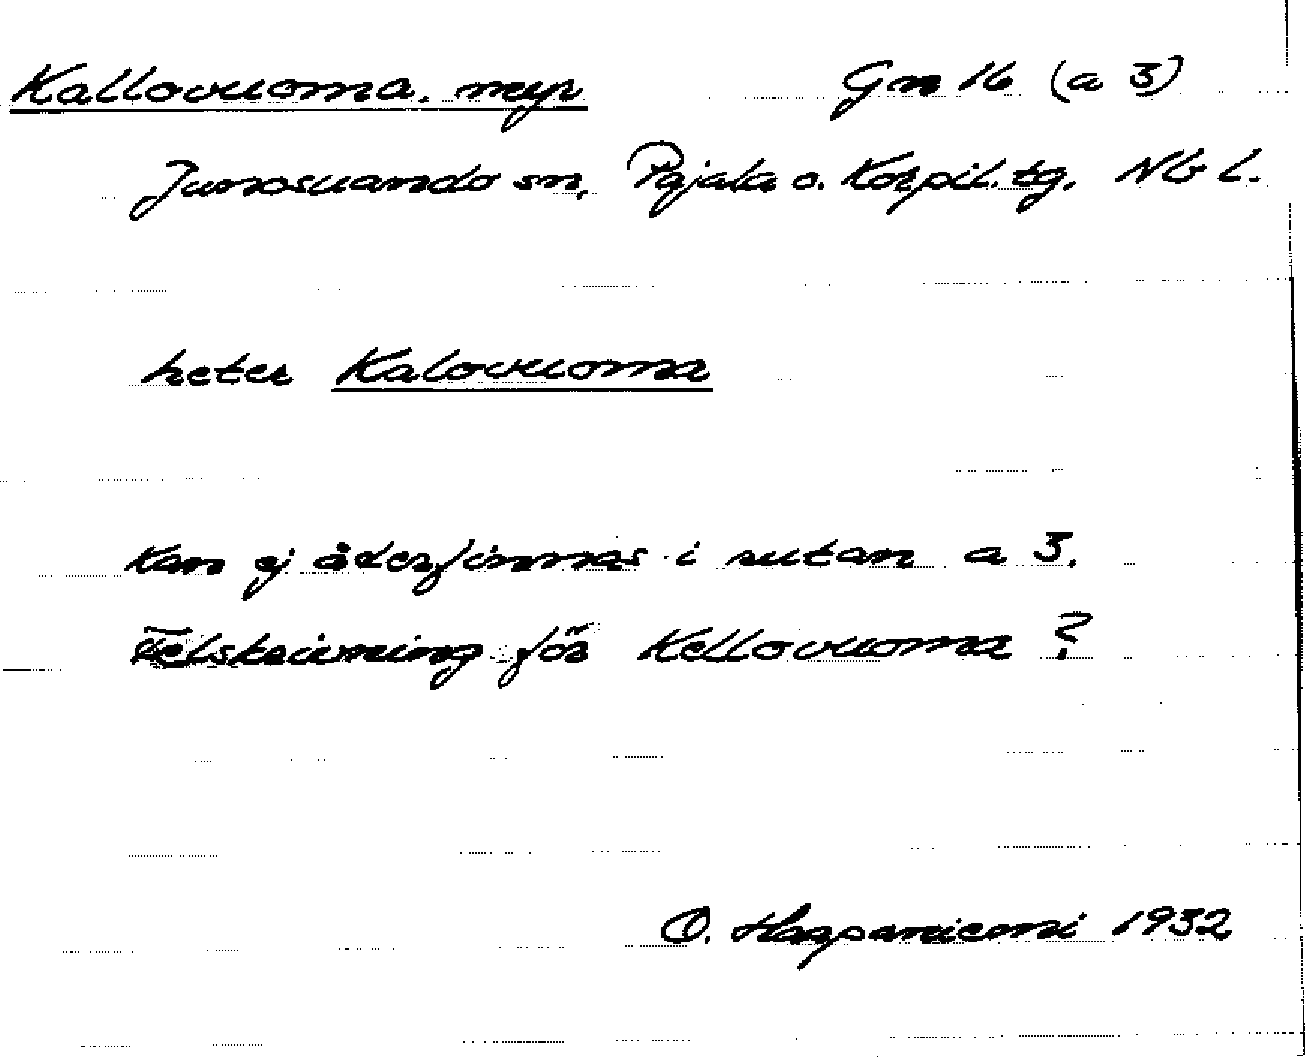 Kallovuoma. myr Gn 16 (a 3)
Junosuando sn, Pajala o. Korpil. tg. Nb L.
heter Kalovuoma
Kan ej återfinnas i rutan a 3.
Felskrivning för Kellovuoma ?
O. Harpaniemi 1932